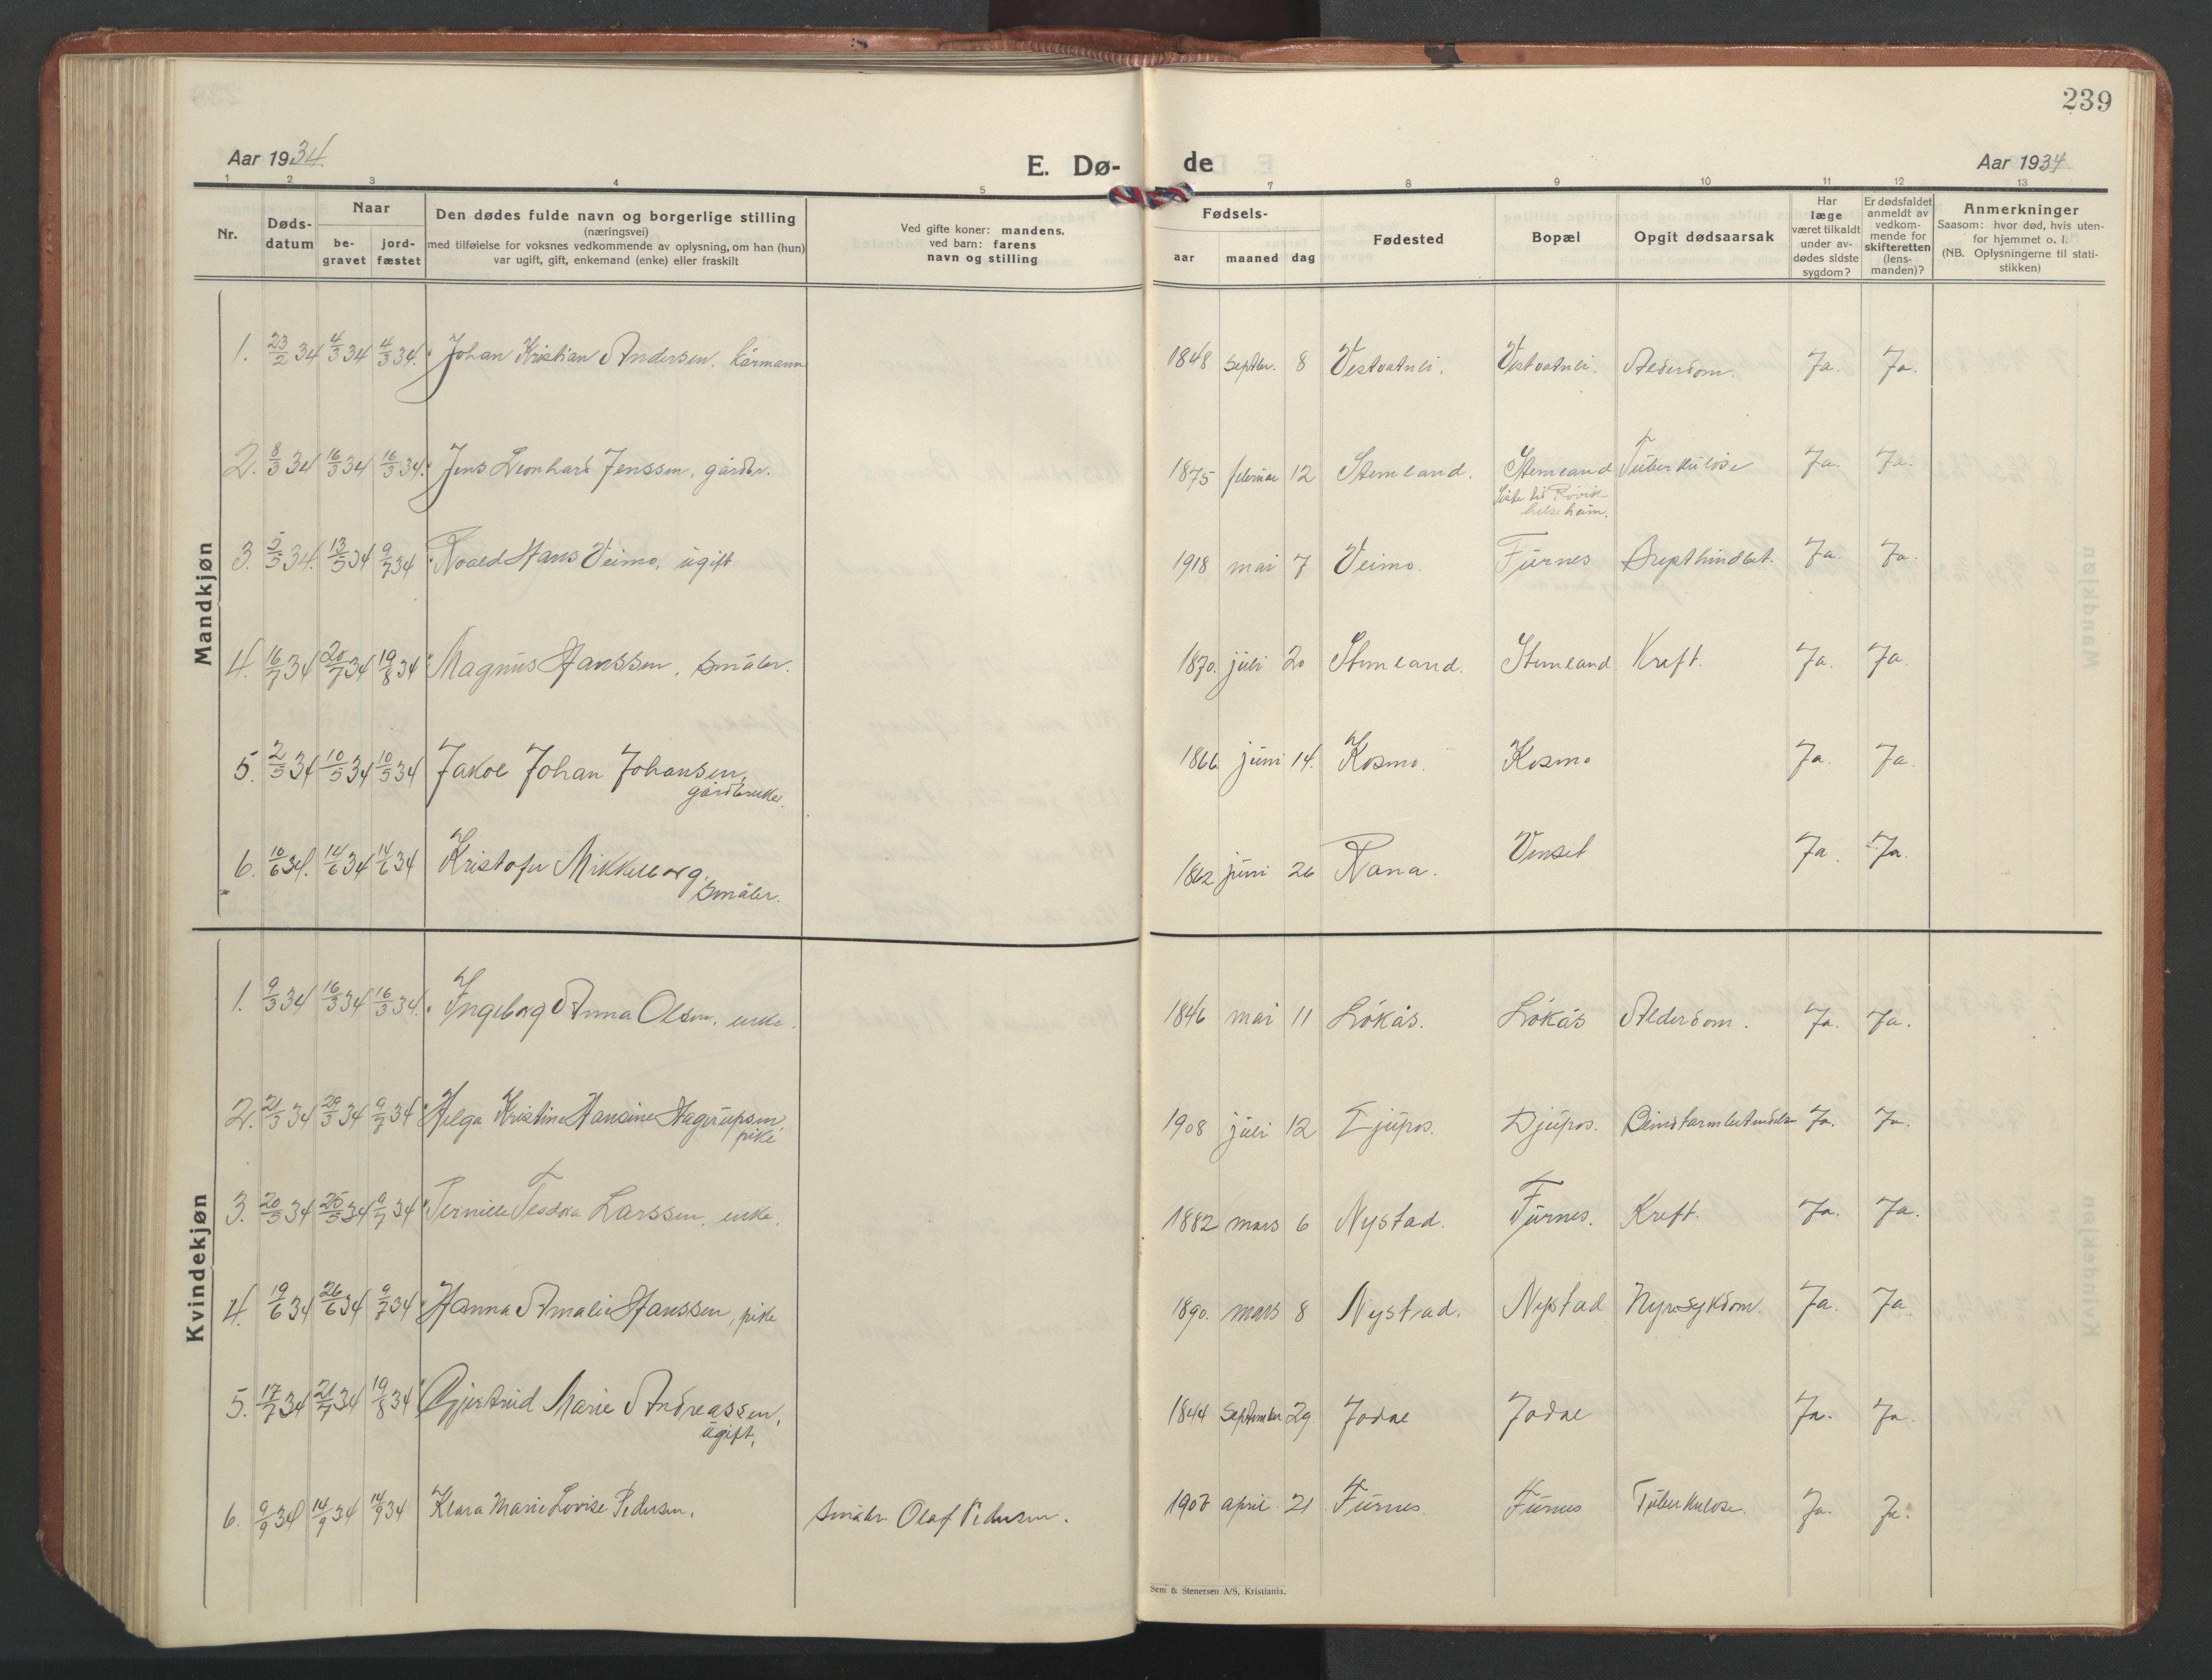 239
Aar 1934.
E. Dø-
de
Aar 1934
1 2 3 4 5 7 8 9 10 11 12 13
Nr.
Døds-
datum
Naar
be-
gravet
jord-
fæstet
Den dødes fulde navn og borgerlige stilling
(næringsvei)
med tilføielse for voksnes vedkommende av oplysning, om han (hun)
var ugift, gift, enkemand (enke) eller fraskilt
Ved gifte koner: mandens,
ved barn: farens
navn og stilling
Fødsels-
aar maaned dag
Fødested
Bopæl
Opgit dødsaarsak
Har
læge
været tilkaldt
under av-
dødes sidste
sygdom?
Er dødsfaldet
anmeldt av
vedkom-
mende for
skifteretten
(lens-
manden)?
Anmerkninger
Saasom: hvor død, hvis uten-
for hjemmet o. l.
(NB. Oplysningerne til stati-
stikken)
Mandkjøn
1. 23/2 34 4/3 34 4/3 34. Johan Kristian Andersen, kårmann 1848 Septbr. 8 Vestvatnli. Vestvatnli. Alderdom. Ja. Ja.
2. 8/3 34 16/3 34 16/3 34. Jens Leonhard Jenssen, gårdbr. 1875 februar 12 Stemland. Stemland Tuberkulose Ja. Ja.
Siste tid Røvik
helseheim.
3. 5/5 34. 13/5 34 9/7 34 Roald Hans Veimo, ugift 1918 mai 7 Veimo. Furnes Ja. Ja.
4. 16/7 34 20/7 34 19/8 34 Magnus Hanssen, småbr. 1870. juli 20 Stemland. Stemland Kreft. Ja. Ja.
5. 2/5 34 10/5 34 10/5 34 Jakob Johan Johansen, 1866 juni 14. Kosmo. Kosmo Ja. Ja.
gårdbruker.
6. 10/6 34. 14/6 34 14/6 34 Kristofer Mikkelborg, 1862 juni 26 Rana. Venset Ja. Ja.
småbr.
Kvindekjøn
1. 9/3 34 16/3 34 16/3 34. Ingeborg Anna Olsen, enke. 1846 mai 11 Løkås. Løkås Alderdom. Ja. Ja.
2. 21/3 34 29/3 34 9/7 34 Helga Kristine Hansine Hagerupsen, 1908 juli 12 Djupos. Djupos. Ja. Ja.
pike
3. 20/5 34 25/5 34 9/7 34 Pernille Teodora Larssen, enke. 1882 mars 6 Nystad. Furnes. Kreft. Ja. Ja.
4. 19/6 34 26/6 34 9/7 34 Hanna Amalie Hanssen, pike 1890. mars 8 Nystad. Nystad Nyresykdom. Ja. Ja.
5. 17/7 34 21/7 34 19/8 34 Gjertrud Marie Andreassen, 1844 September 29. Jodal Jodal Ja. Ja.
ugift,
6. 9/9 34 14/9 34 14/9 34 Klara Marie Lovise Pedersen. Småbr. Olaf Pedersen. april 21 Furnes. Furnes Tuberkulose. Ja. Ja.
Sem & Stenersen A/S, Kristiania.